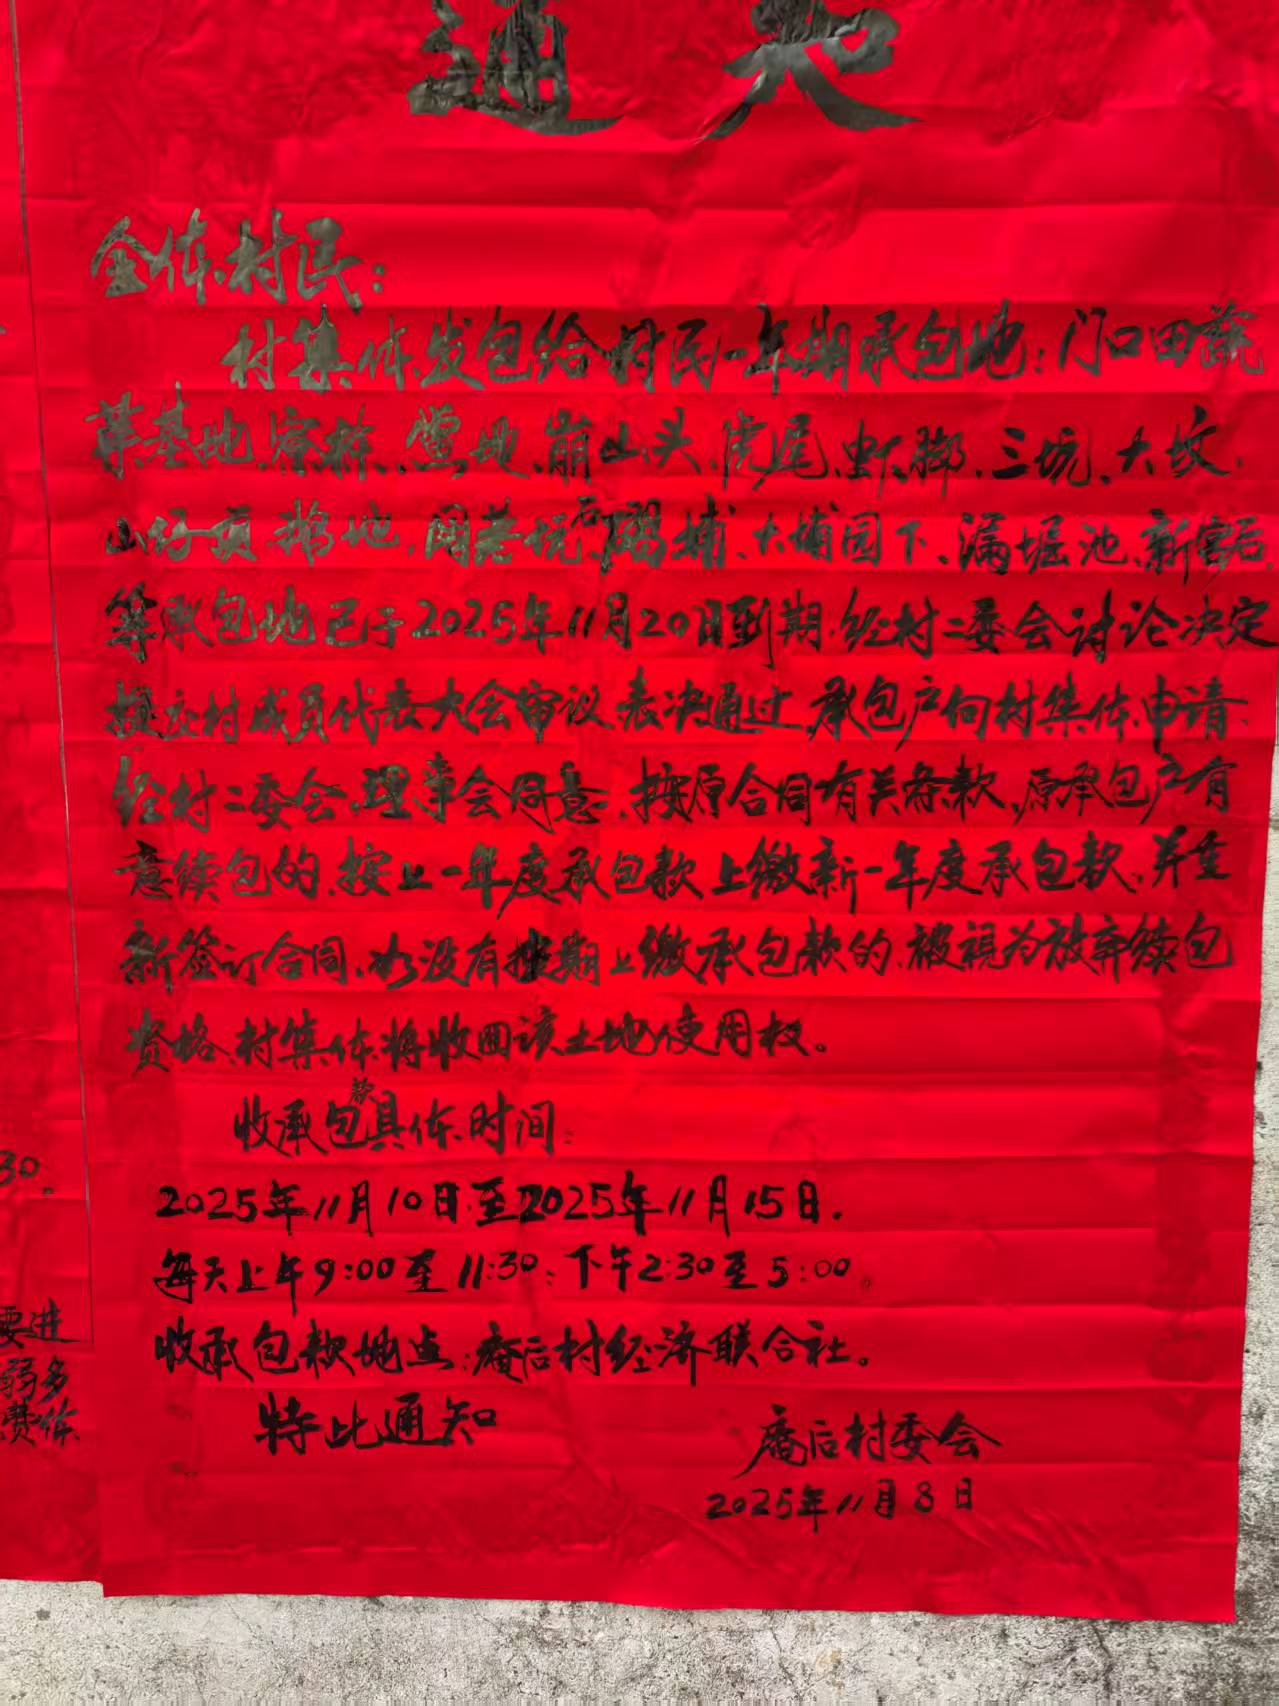 通知
全体村民：
村集体发包给村民一年期承包地：门口田蔬
菜基地、寮斜、窑地、崩山头、虎尾、虾脚、三坑、大坟、
山仔頁、地、坑、埔、大埔园下、漏堀池、新寮后、
等承包地已于2025年11月20日到期.经村二委会讨论决定
提交村成员代表大会审议、表决通过,承包户向村集体申请
经村二委会、理事会同意、按原合同有关条款,原承包户有
意续包的、按上一年度承包款上缴新一年度承包款、并重
新签订合同、如没有按期上缴承包款的、被视为放弃续包
资格、村集体将收回该土地使用权。
收承包款具体时间：
2025年11月10日至2025年11月15日.
每天上午9:00至11:30；下午2:30至5:00。
收承包款地点：庵后村经济联合社。
特此通知
庵后村委会
2025年11月8日
30.
要进
弱多
费体